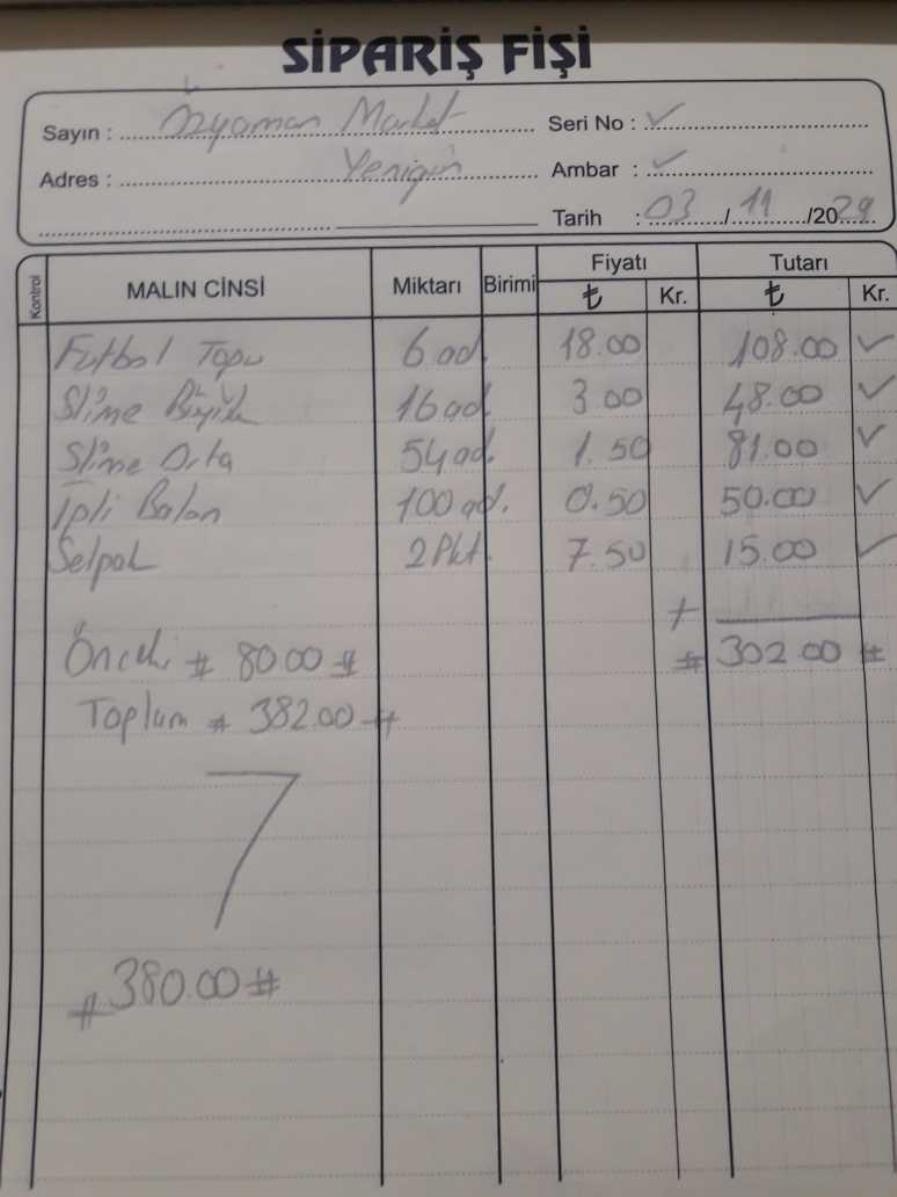 SİPARİŞ FİŞİ
Sayın : Özyaman Market Seri No : ✓
Adres : Yenigün Ambar : ✓
Tarih : 03 / 11 /2029
Kontrol MALIN CİNSİ Miktarı Birimi Fiyatı ₺ Kr. Tutarı ₺ Kr.
Futbol Topu 6 ad. 18.00 108.00 ✓
Slime Büyük 16 ad. 3.00 48.00 ✓
Slime Orta 54 ad. 1.50 81.00 ✓
İpli Balon 100 ad. 0.50 50.00 ✓
Selpak 2 Pkt. 7.50 15.00 ✓
+
Önceki # 80.00 # # 302.00 #
Toplam # 382.00 #
# 380.00 #